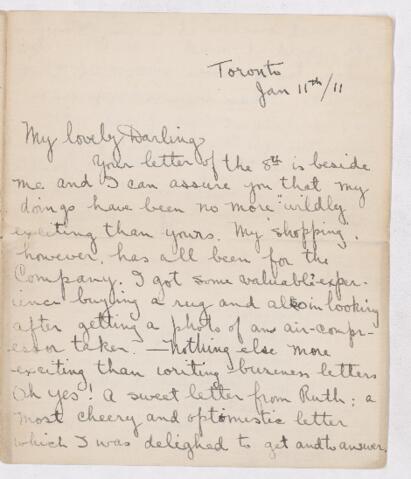 Toronto
Jan 11th/11
My lovely Darling
Your letter of the 8th is beside
me and I can assure you that my
doings have been no more "wildly
exciting than yours. My shopping,
however, has all been for the
Company. I got some valuable exper-
ience buying a rug and also in looking
after getting a photo of an air-compr-
essor taken. — Nothing else more
exciting than writing buisness letters
Oh yes! A sweet letter from Ruth: a
most cheery and optomistic letter
which I was delighed to get and to answer.